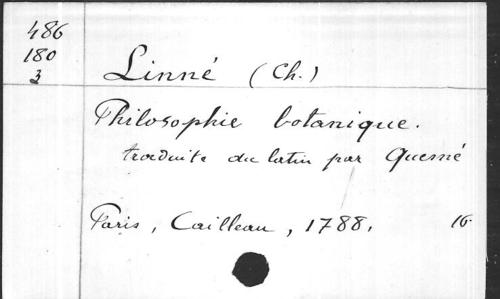 486
180
3
Linné (Ch.)
Philosophie botanique.
traduite du latin par Quesné
Paris, Cailleau, 1788. 16